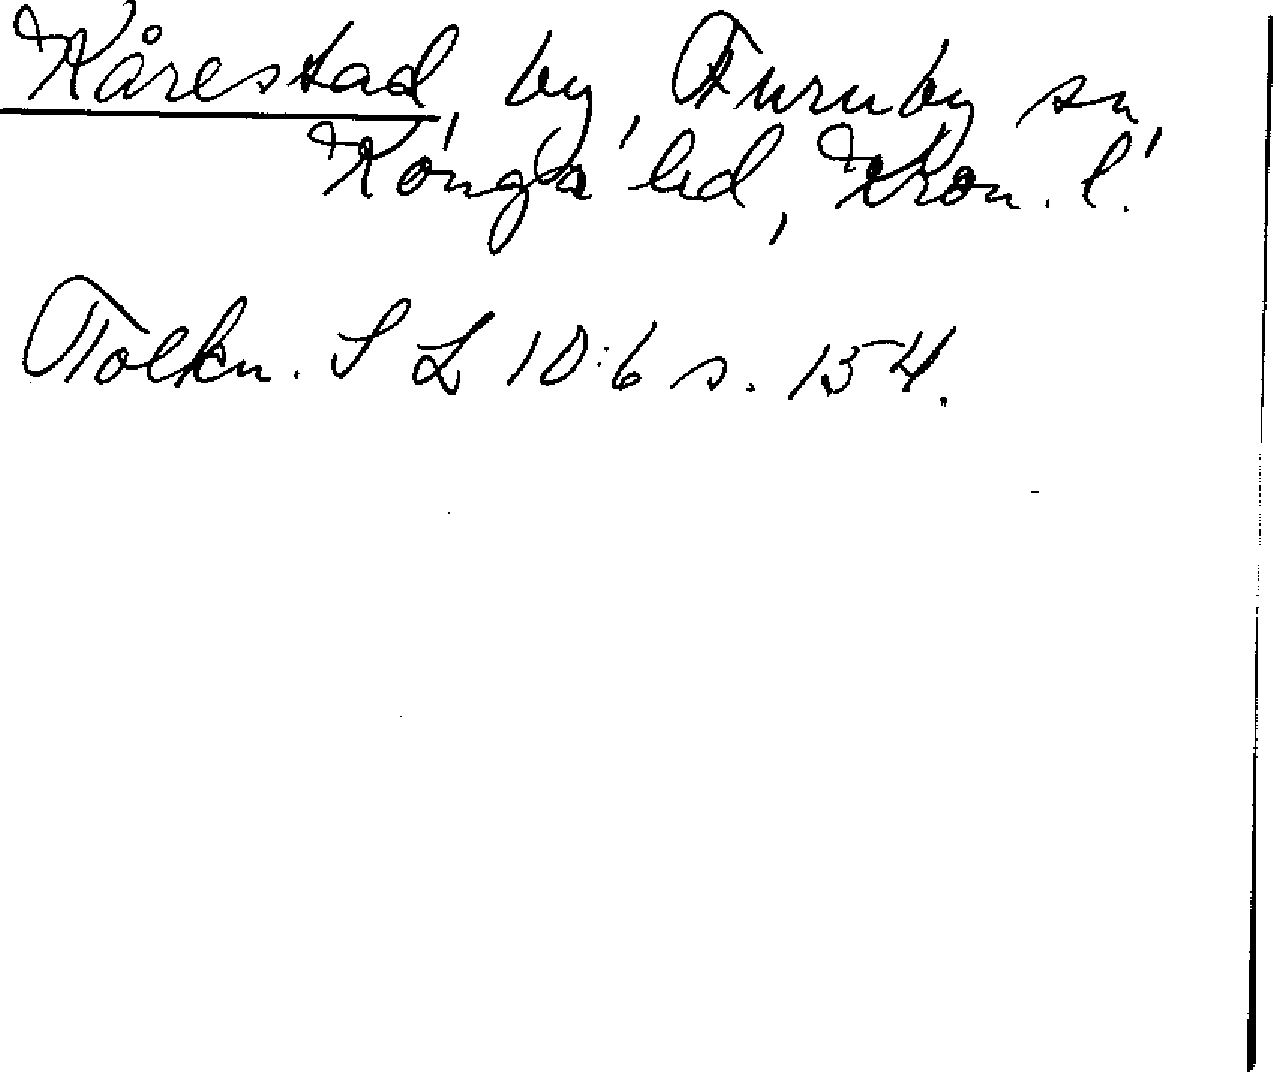 Kårestad, by, Furuby sn,
Konga hd, Kron. l.
Tolkn. SL 10:6 s. 154.